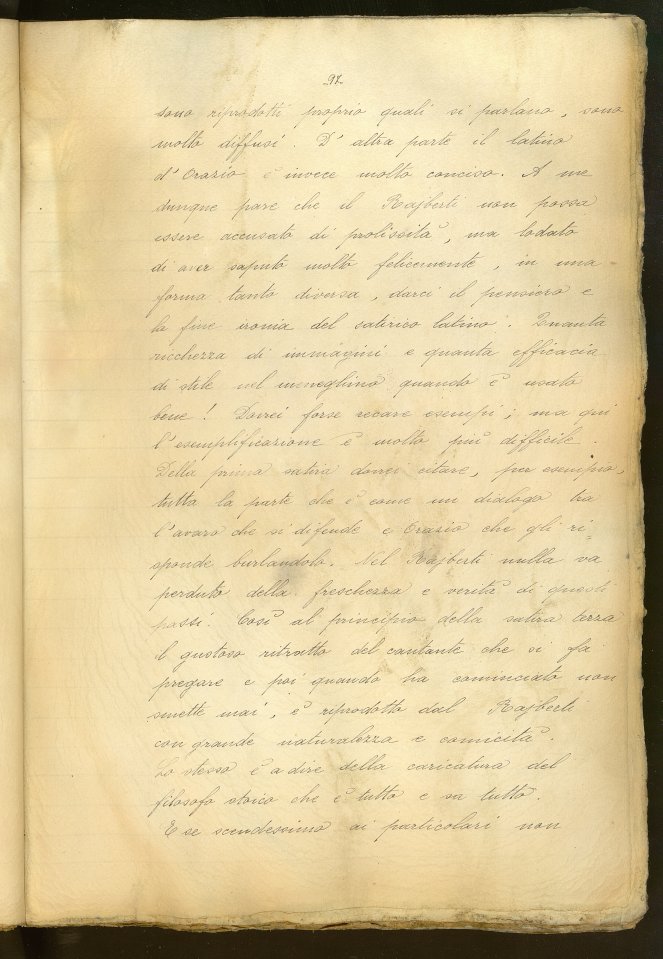 97
sono riprodotti proprio quali si parlano, sono
molto diffusi. D'altra parte il latino
d'Orazio è invece molto conciso. A me
dunque pare che il Rajberti non possa
essere accusato di prolissità, ma lodato
di aver saputo molto felicemente, in una
forma tanto diversa, darci il pensiero e
la fine ironia del satirico latino. Quanta
ricchezza di immagini e quanta efficacia
di stile nel meneghino quando è usato
bene! Dovrei forse recare esempi; ma qui
l'esemplificazione è molto più difficile.
Della prima satira dovrei citare, per esempio,
tutta la parte che è come un dialogo tra
l'avaro che si difende e Orazio che gli ri-
sponde burlandolo. Nel Rajberti nulla va
perduto della freschezza e verità di questi
passi. Così al principio della satira terza
il gustoso ritratto del cantante che si fa
pregare e poi quando ha cominciato non
smette mai, è riprodotto dal Rajberti
con grande naturalezza e comicità.
Lo stesso è a dire della caricatura del
filosofo stoico che è tutto e sa tutto.
E se scendessimo ai particolari non